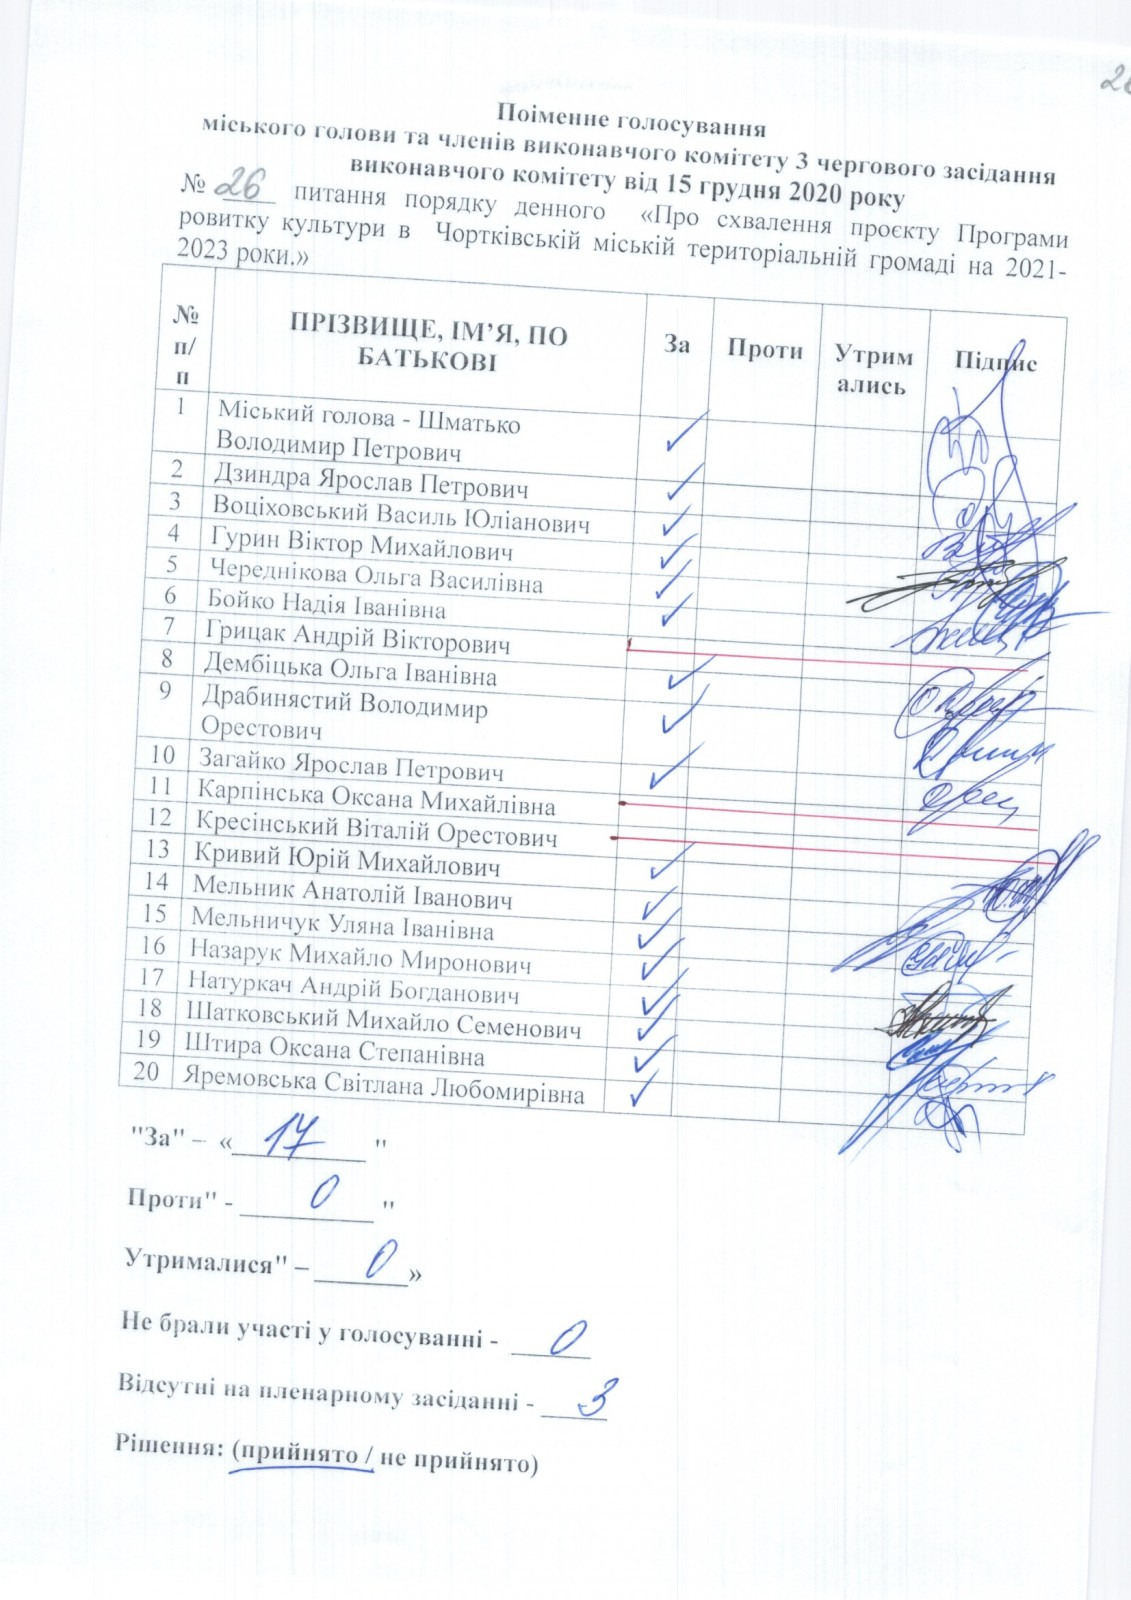 Поіменне голосування
міського голови та членів виконавчого комітету 3 чергового засідання
виконавчого комітету від 15 грудня 2020 року
№ 26 питання порядку денного «Про схвалення проєкту Програми
ровитку культури в Чортківській міській територіальній громаді на 2021-
2023 роки.»
№ п/п ПРІЗВИЩЕ, ІМ’Я, ПО БАТЬКОВІ За Проти Утримались Підпис
1 Міський голова - Шматько
Володимир Петрович ✓
2 Дзиндра Ярослав Петрович ✓
3 Воціховський Василь Юліанович ✓
4 Гурин Віктор Михайлович ✓
5 Череднікова Ольга Василівна ✓
6 Бойко Надія Іванівна ✓
7 Грицак Андрій Вікторович
8 Дембіцька Ольга Іванівна ✓
9 Драбинястий Володимир
Орестович ✓
10 Загайко Ярослав Петрович ✓
11 Карпінська Оксана Михайлівна
12 Кресінський Віталій Орестович
13 Кривий Юрій Михайлович ✓
14 Мельник Анатолій Іванович ✓
15 Мельничук Уляна Іванівна ✓
16 Назарук Михайло Миронович ✓
17 Натуркач Андрій Богданович ✓
18 Шатковський Михайло Семенович ✓
19 Штира Оксана Степанівна ✓
20 Яремовська Світлана Любомирівна ✓
"За" – «17 "
Проти" - 0 "
Утрималися" – 0»
Не брали участі у голосуванні - 0
Відсутні на пленарному засіданні - 3
Рішення: (прийнято / не прийнято)